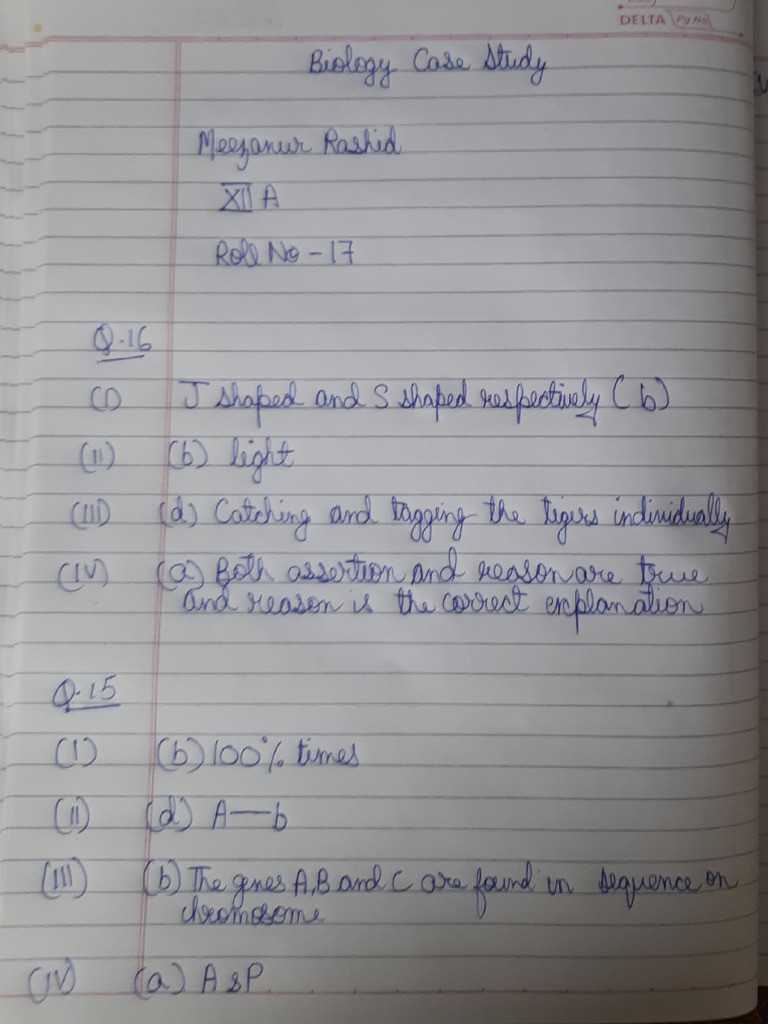 DELTA Pg No
Biology Case Study
Meezanur Rashid
XII A
Roll No - 17
Q.16
(I) J shaped and S shaped respectively (b)
(II) (b) light
(III) (d) Catching and tagging the tigers individually
(IV) (a) Both assertion and reason are true
and reason is the correct explanation
Q.15
(I) (b) 100% times
(II) (d) A—b
(III) (b) The genes A,B and C are found in sequence on
chromosome
(IV) (a) A & P